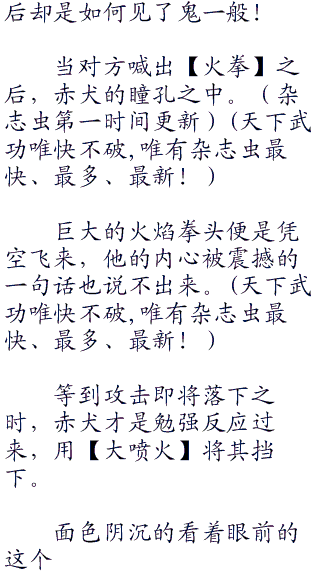 后却是如何见了鬼一般！
当对方喊出【火拳】之
后，赤犬的瞳孔之中。（杂
志虫第一时间更新）(天下武
功唯快不破,唯有杂志虫最
快、最多、最新！）
巨大的火焰拳头便是凭
空飞来，他的内心被震撼的
一句话也说不出来。(天下武
功唯快不破,唯有杂志虫最
快、最多、最新！）
等到攻击即将落下之
时，赤犬才是勉强反应过
来，用【大喷火】将其挡
下。
面色阴沉的看着眼前的
这个